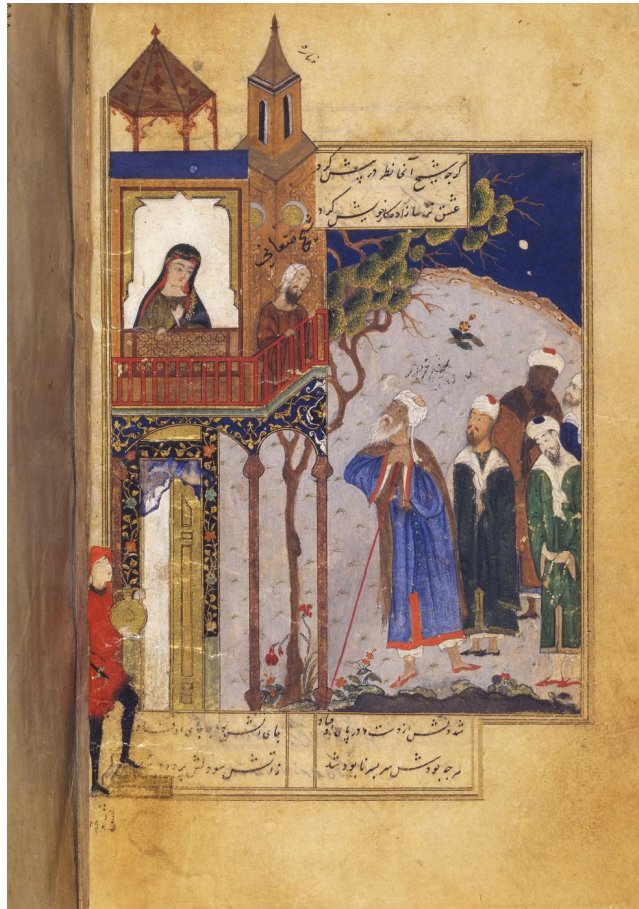 گرچه شیخ آنجا نظر در پیش کرد
عشق ترسا زاده کار خویش کرد
شیخ صنعانی
شد دلش از دست و در پای اوفتاد جای آتش بود
هر چه بودش سر بسر نابود شد ز آتش سودا دلش پر دود شد